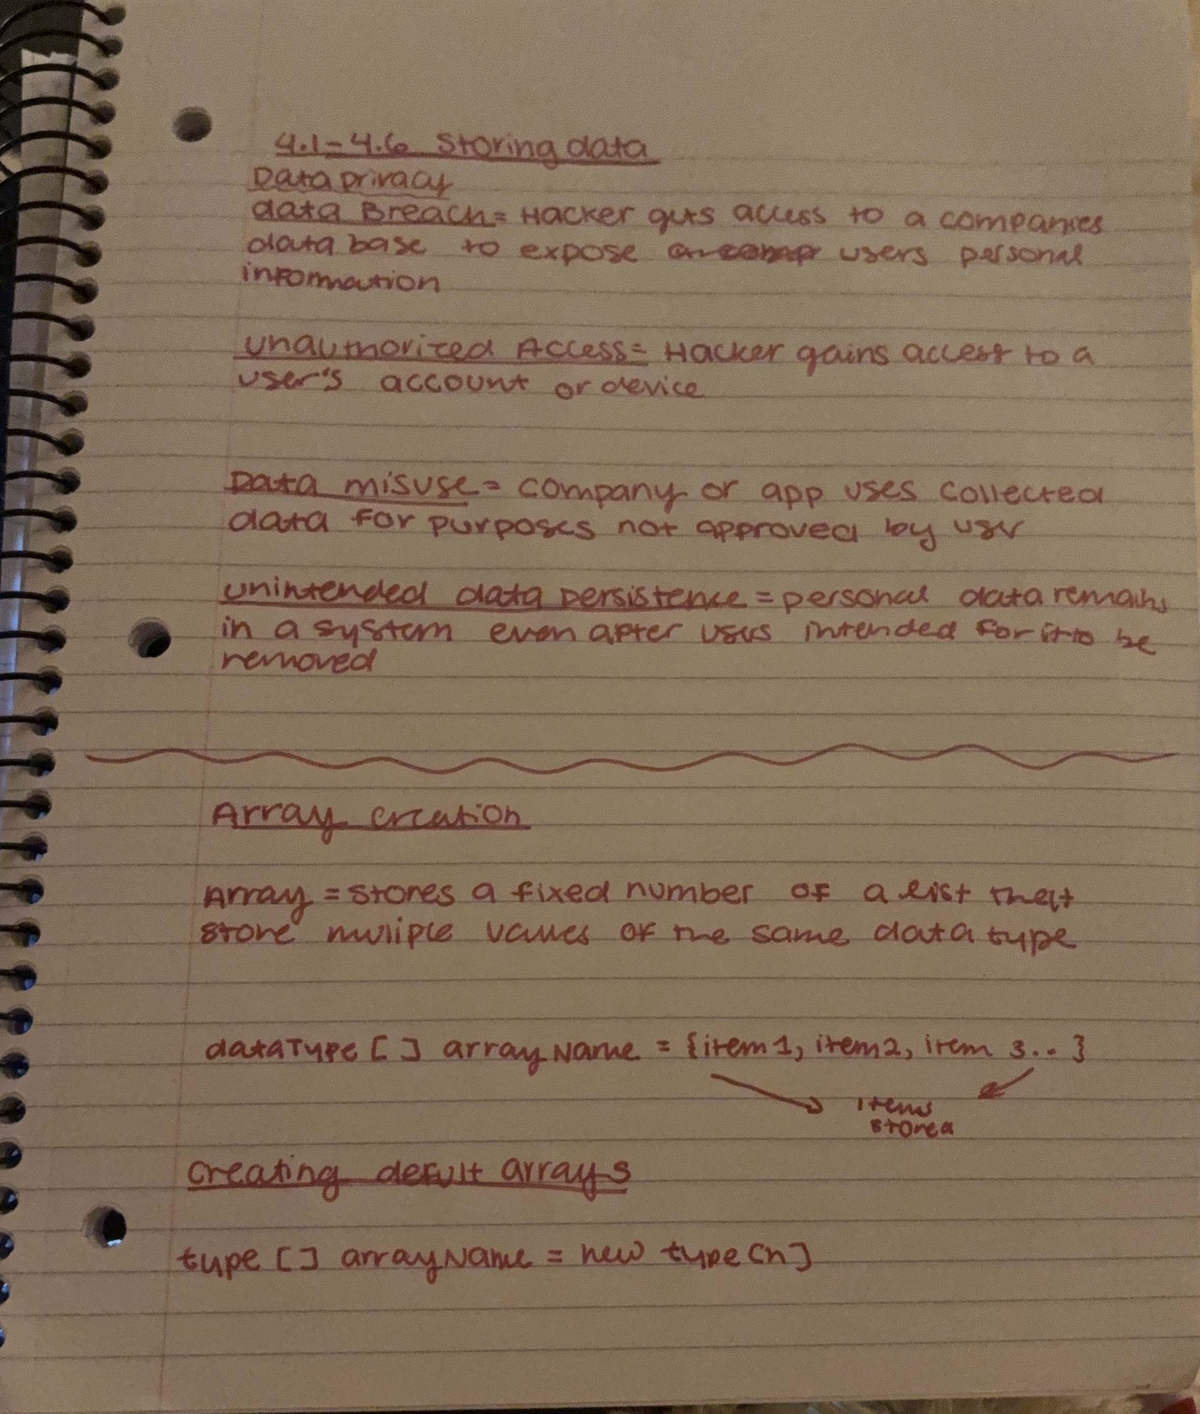 4.1-4.6 Storing data
Data privacy
data Breach = Hacker gets access to a companies
data base to expose users personal
information
unauthorized Access = Hacker gains access to a
user's account or device
Data misuse = company or app uses collected
data for purposes not approved by user
unintended data persistence = personal data remains
in a system even after users intended for it to be
removed
Array creation
Array = stores a fixed number of a list that
store muliple values of the same data type
dataType [ ] arrayName = {item1, item2, item 3.. }
items
stored
Creating defult arrays
type [ ] arrayName = new type [n]